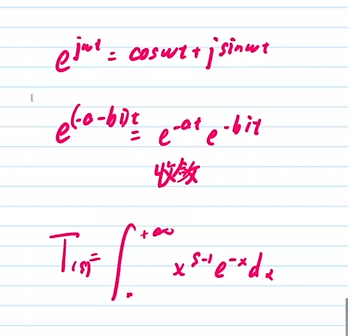 e^{jωt} = cosωt + j sinωt
e^{(-a-bi)t} = e^{-at} e^{-bit}
收敛
Γ(s) = ∫_0^{+∞} x^{s-1} e^{-x} dx